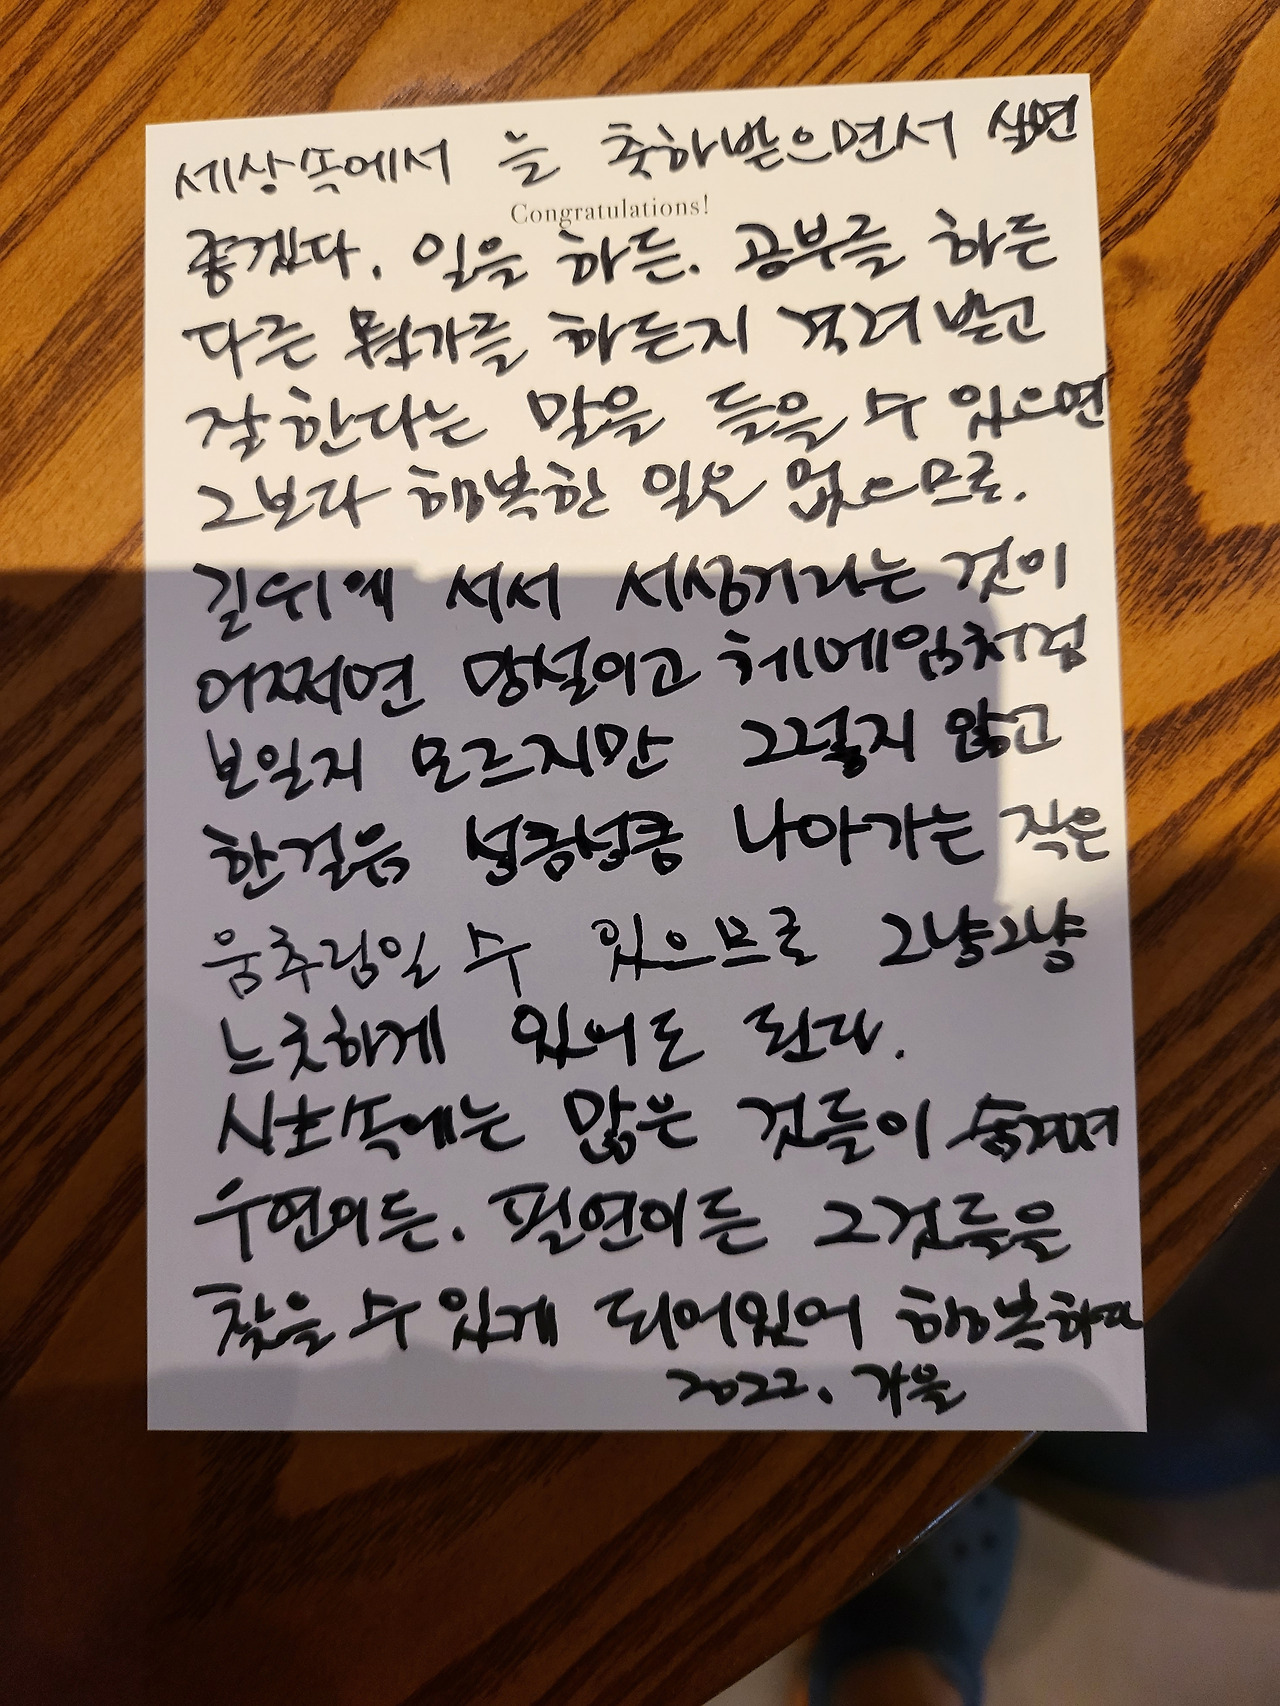 세상속에서 늘 축하받으면서 살면
Congratulations!
좋겠다. 일을 하든. 공부를 하든
다른 뭔가를 하든지 격려 받고
잘한다는 말을 들을 수 있으면
그보다 행복한 일은 없으므로.
길위에 서서 서성거리는 것이
어쩌면 망설이고 헤메임처럼
보일지 모르지만 그렇지 않고
한걸음 성큼성큼 나아가는 작은
움추림일 수 있으므로 그냥그냥
느긋하게 있어도 된다.
시크속에는 많은 것들이 숨겨져
우연이든. 필연이든 그것들을
찾을 수 있게 되어있어 행복하다
2022. 가을